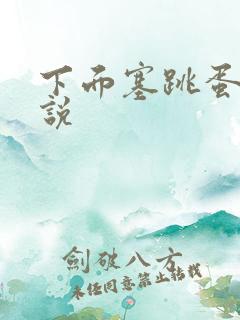 下而塞跳蛋
說
劍破八方
未经同意禁止转载